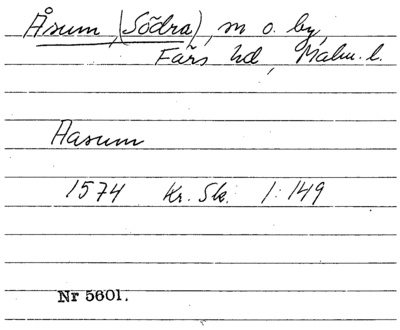 Åsum (Södra), sn o. by,
Färs hd, Malm. l.
Aasum
1574 Kr. Sk. 1:149
Nr 5601.